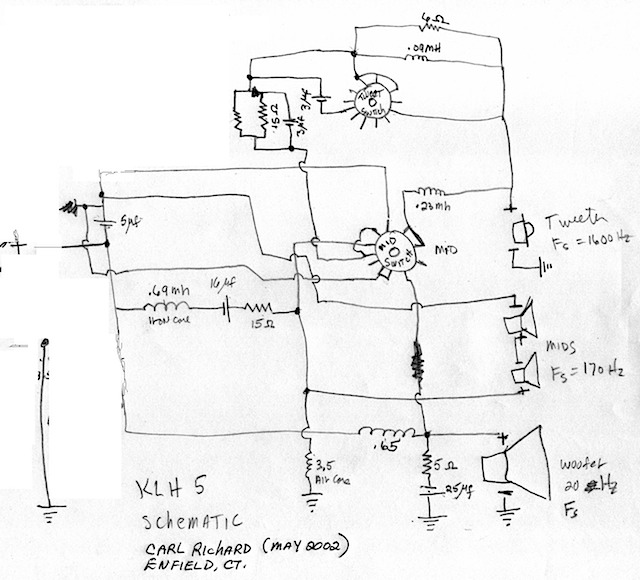 6Ω
.09MH
.15Ω
3µf
3µf
TWEET
SWITCH
.23mh
5µf
+
MID
SWITCH
MID
+
Tweeter
Fs = 1600 Hz
.69mh
IRON Core
16µf
15Ω
MIDS
Fs = 170 Hz
+
+
.65
3.5
Air Core
5Ω
25µf
+
woofer
20 Hz
Fs
KLH 5
Schematic
CARL RICHARD (MAY 2002)
ENFIELD, CT.